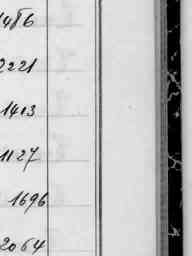 1486
2221
1413
1127
1696
2064